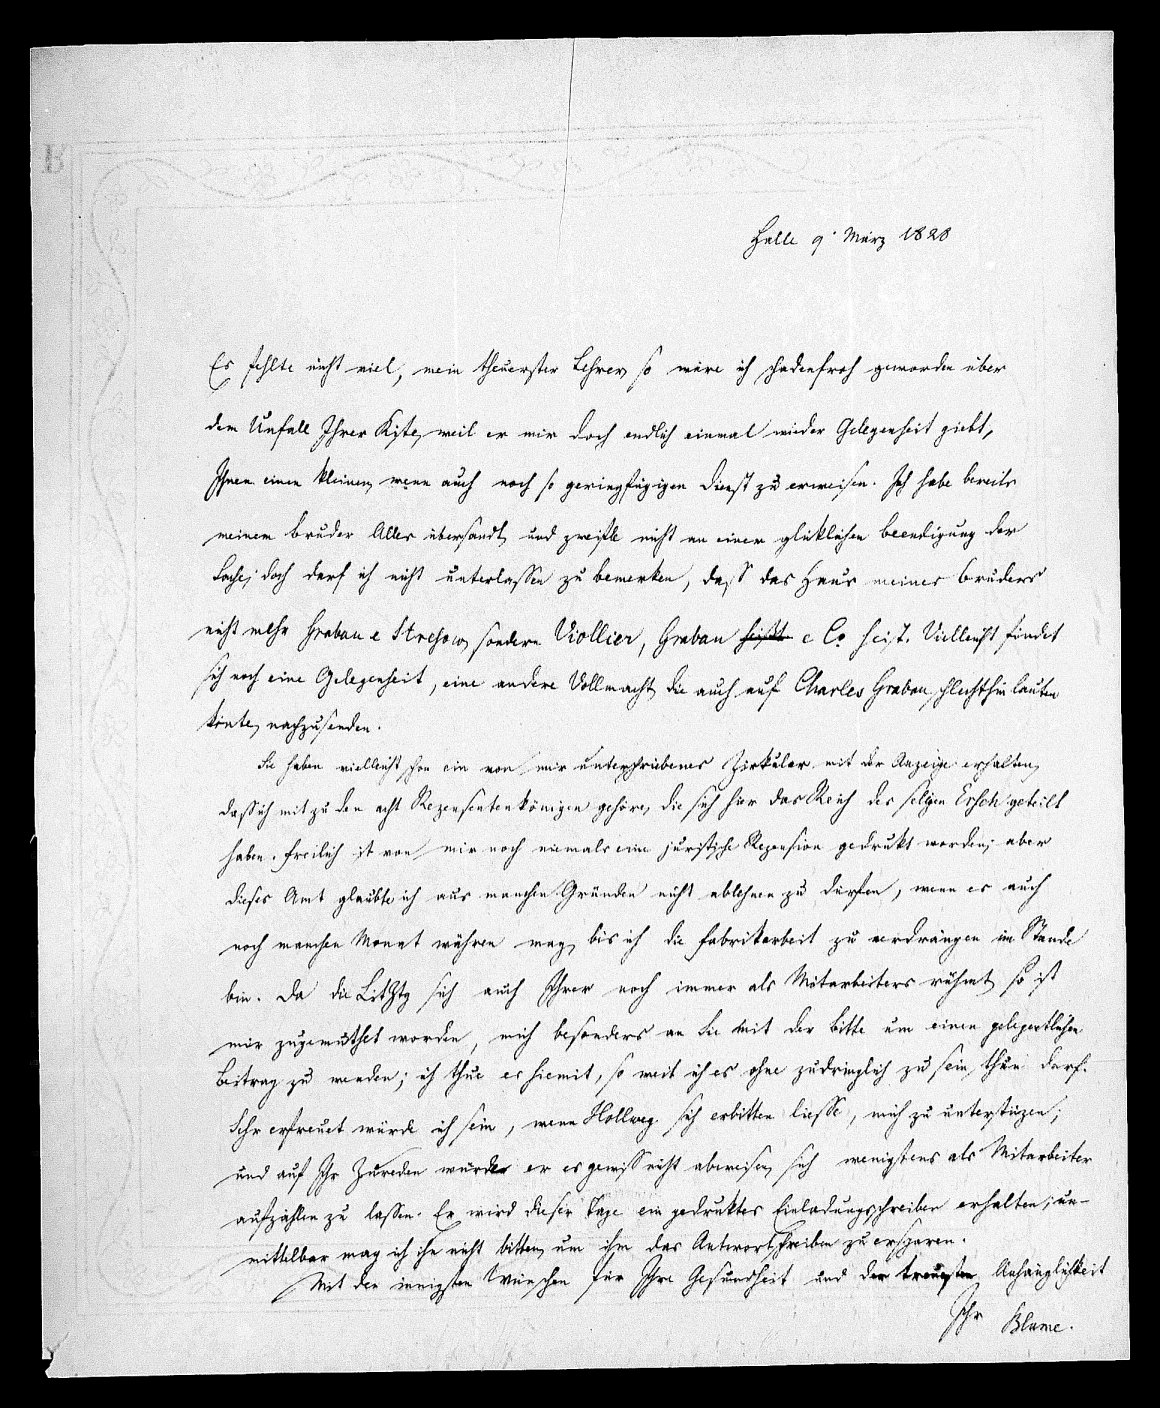 Halle 9. März 1828
Es fehlte nicht viel, mein theuerster Lehrer, so wäre ich schadenfroh geworden über
den Unfall Ihrer Kiste, weil er mir doch endlich einmal wieder Gelegenheit giebt,
Ihnen einen kleinen, wenn auch noch so geringfügigen Dienst zu erweisen. Ich habe bereits
meinem Bruder Alles übersandt, und zweifle nicht an einer glüklichen Beendigung der
Sache; doch darf ich nicht unterlassen zu bemerken, dass das Haus meines Bruders
nicht mehr Grabau e Stresow, sondern Viollier, Grabau heißt e Co heist. Vielleicht findet
sich noch eine Gelegenheit, eine andere Vollmacht, die auch auf Charles Grabau schlechthin lauten
könte, nachzusenden.
Sie haben vielleicht schon ein von mir unterschriebenes Zirkular mit der Anzeige erhalten,
dass ich mit zu den acht Rezensentenkönigen gehöre, die sich hier das Reich des seligen Ersch geteilt
haben. Freilich ist von mir noch niemals eine juristische Rezension gedrukt worden; aber
dieses Amt glaubte ich aus manchen Gründen nicht ablehnen zu dürfen, wenn es auch
noch manchen Monat währen mag, bis ich die Fabrikarbeit zu verdrängen im Stande
bin. Da die LitZtg sich auch Ihrer noch immer als Mitarbeiters rühmt, so ist
mir zugemuthet worden, mich besonders an Sie mit der Bitte um einen gelegentlichen
Beitrag zu wenden; ich thue es hiemit, so weit ich es ohne zudringlich zu sein, thun darf.
Sehr erfreuet würde ich sein, wenn Hollweg sich erbitten liesse, mich zu unterstüzen;
und auf Ihr Zureden würde er es gewiss nicht abweisen, sich wenigstens als Mitarbeiter
aufzählen zu lassen. Er wird dieser Tage ein gedruktes Einladungsschreiben erhalten; un-
mittelbar mag ich ihn nicht bitten, um ihm das Antwortschreiben zu ersparen.
Mit den innigsten Wünschen für Ihre Gesundheit und der treuesten Anhänglichkeit
Ihr Blume.